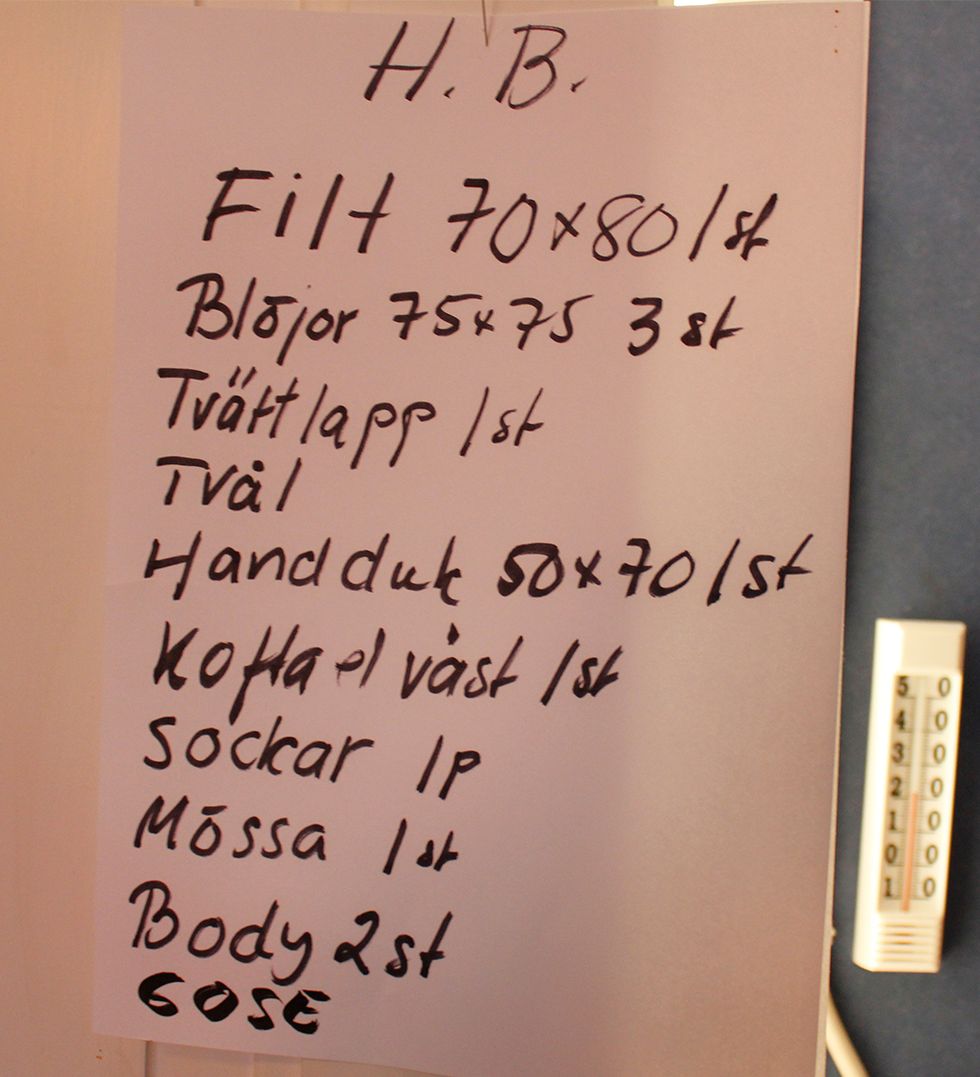 H. B.
Filt 70x80 1 st
Blöjor 75x75 3 st
Tvättlapp 1 st
Tvål
Handduk 50x70 1 st
Kofta el väst 1 st
Sockar 1 p
Mössa 1 st
Body 2 st
GOSE
5 0
4 0
3 0
2 0
1 0
0 0
1 0